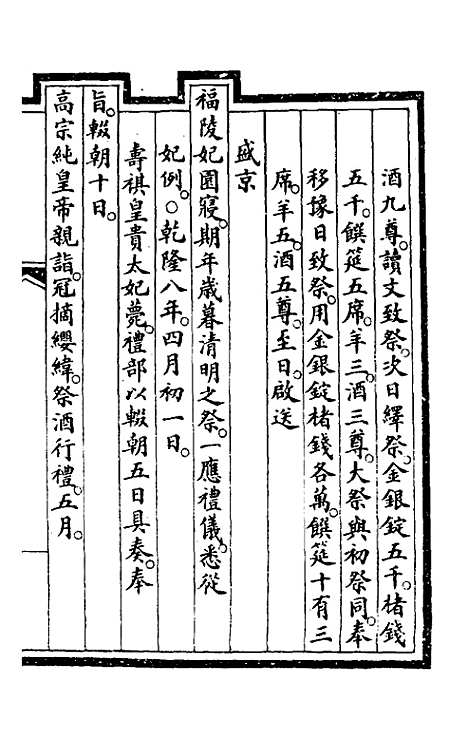 酒九尊。讀文致祭。次日繹祭。金銀錠五千。楮錢
五千。饌筵五席。羊三。酒三尊。大祭與初祭同。奉
移豫日致祭。用金銀錠楮錢各萬。饌筵十有三
席。羊五。酒五尊。至日。啟送
盛京
福陵妃園寢。期年歲暮清明之祭。一應禮儀。悉從
妃例。○乾隆八年。四月初一日。
壽祺皇貴太妃薨。禮部以輟朝五日具奏。奉
旨。輟朝十日。
高宗純皇帝親詣。冠摘纓緯。祭酒行禮。五月。